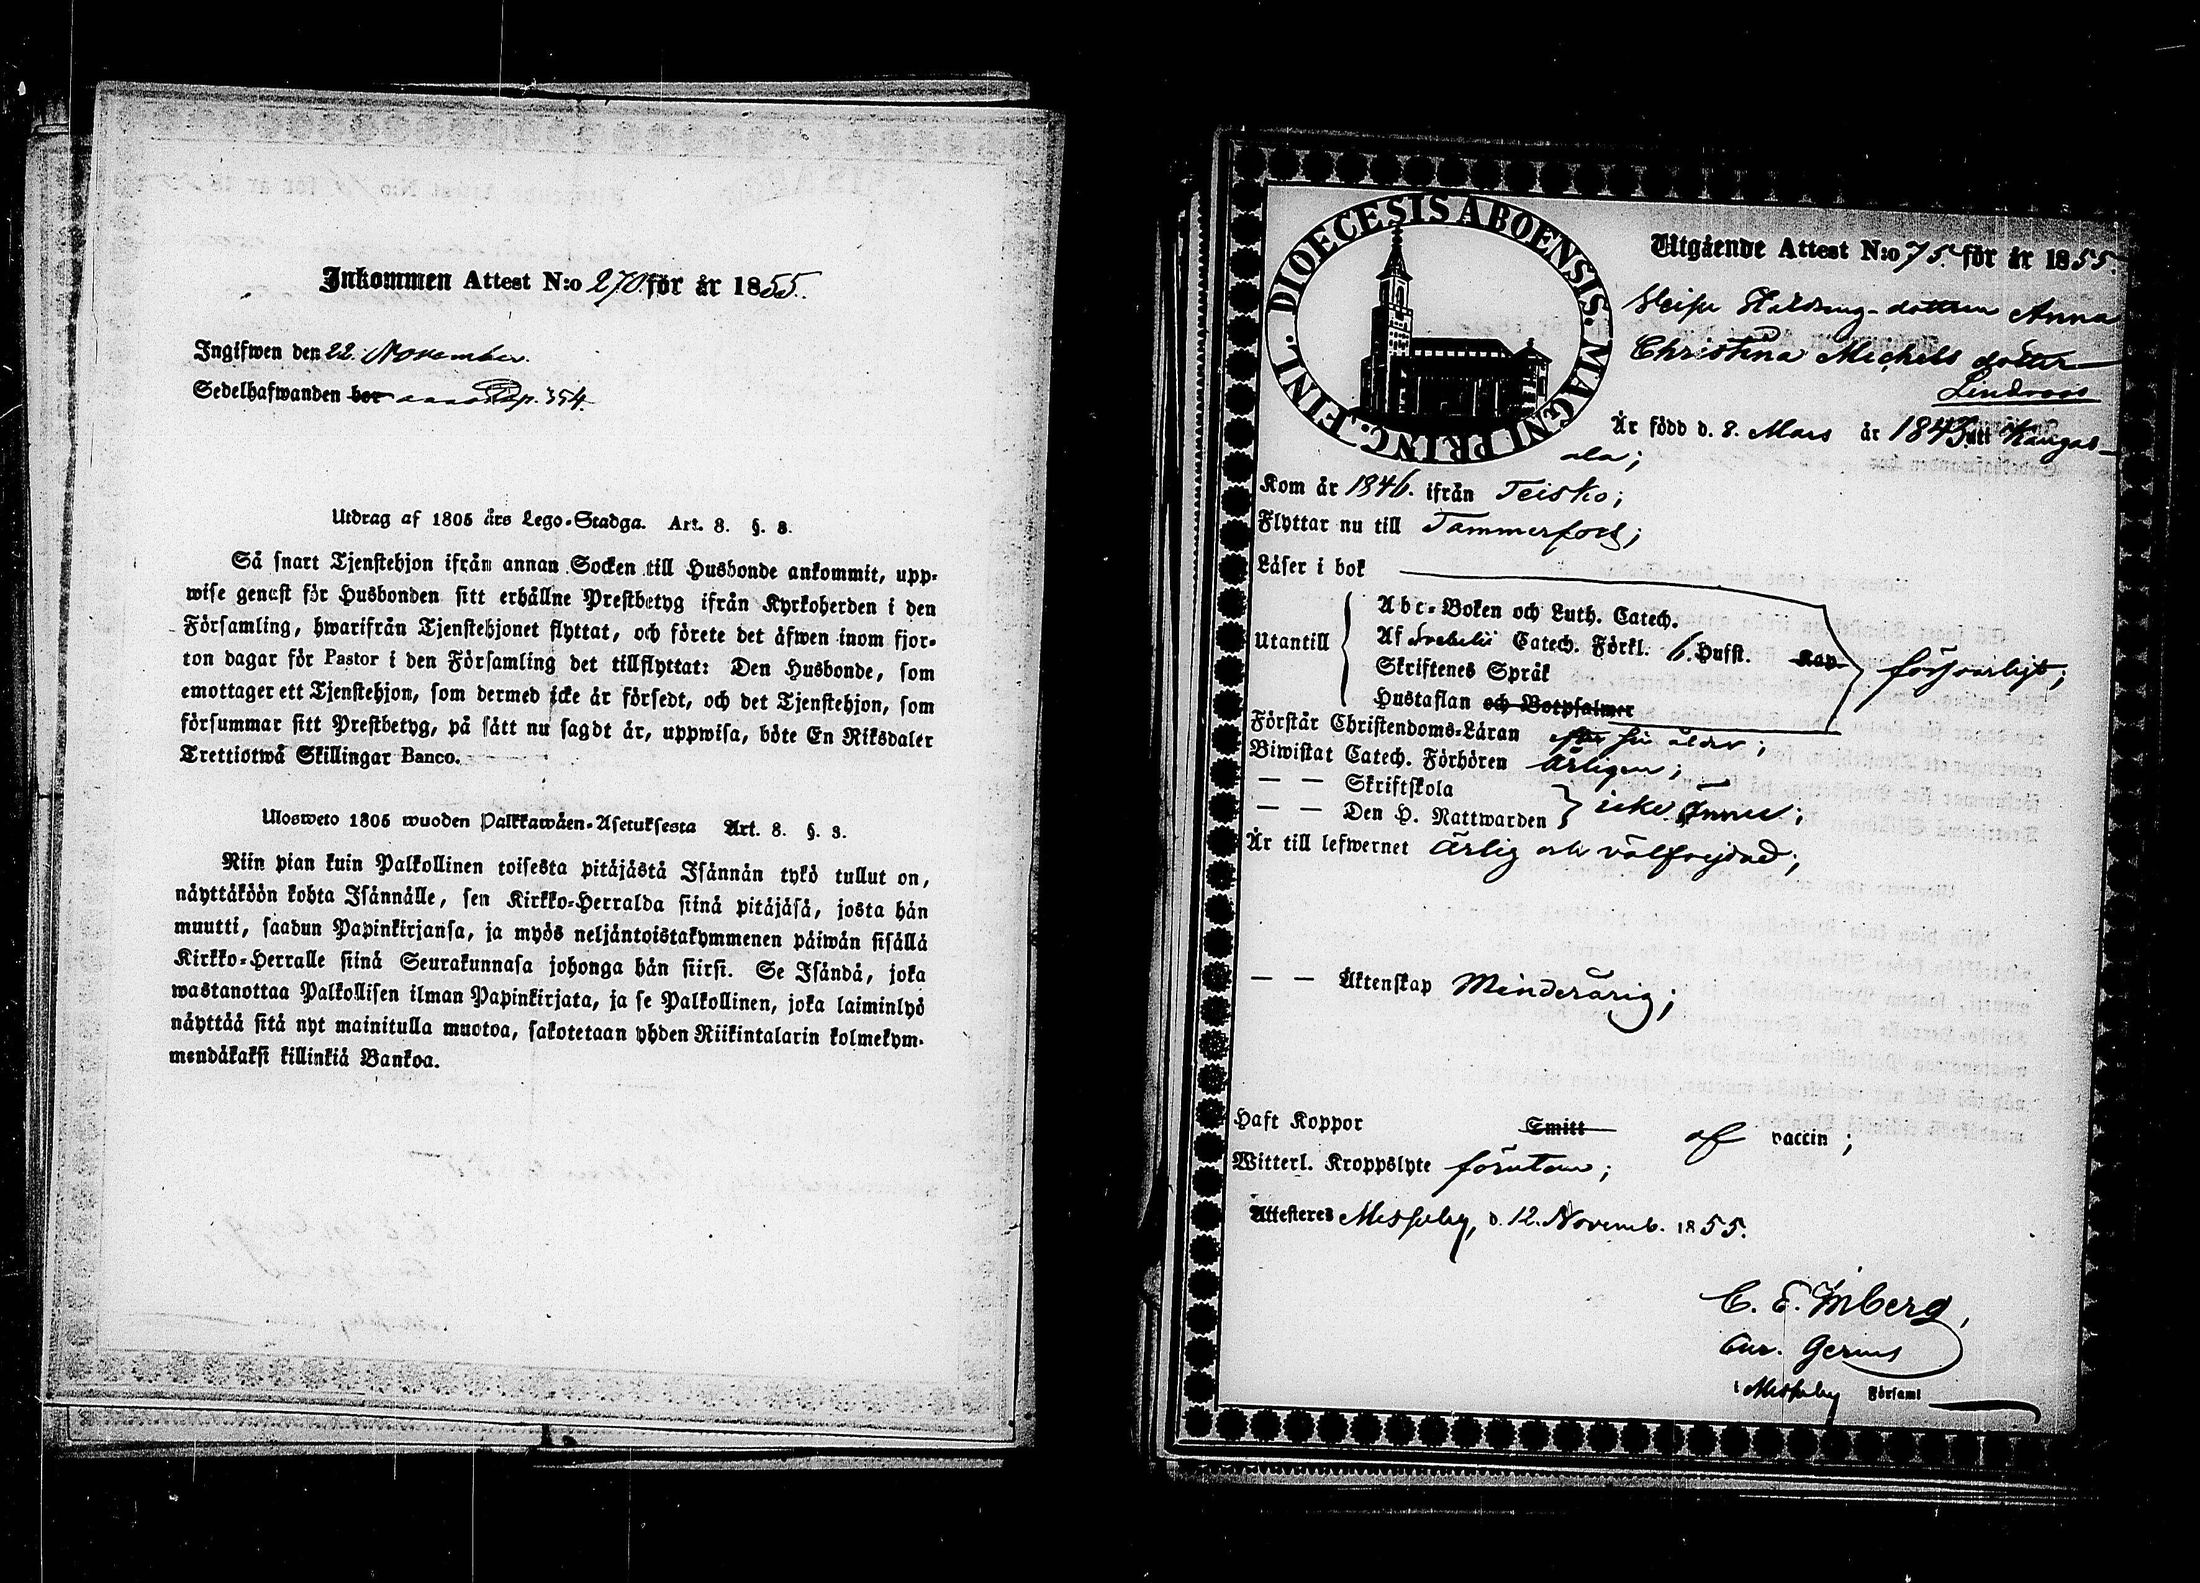 Inkommen Attest N:o 270 för år 1855.
Ingifwen den 22. November.
Sedelhafwanden bor p. 354.
Utdrag af 1805 års Lego-Stadga. Art. 8. §. 8.
Så snart Tjenstehjon ifrån annan Socken till Husbonde ankommit, upp-
wise genast för Husbonden sitt erhållne Prestbetyg ifrån Kyrkoherden i den
Församling, hwarifrån Tjenstehjonet flyttat, och förete det äfwen inom fjor-
ton dagar för Pastor i den Församling det tillflyttat: Den Husbonde, som
emottager ett Tjenstehjon, som dermed icke är försedt, och det Tjenstehjon, som
försummar sitt Prestbetyg, på sätt nu sagdt är, uppwisa, böte En Riksdaler
Trettiotwå Skillingar Banco.
Ulosweto 1805 wuoden Palkkawäen-Asetuksesta Art. 8. §. 8.
Niin pian kuin Palkollinen toisesta pitäjästä Isännän tykö tullut on,
näyttäköön kohta Isännälle, sen Kirkko-Herralda siinä pitäjäsä, josta hän
muutti, saadun Papinkirjansa, ja myös neljäntoistakymmenen päiwän sisällä
Kirkko-Herralle siinä Seurakunnasa johonga hän siirsi. Se Isändä, joka
wastanottaa Palkollisen ilman Papinkirjata, ja se Palkollinen, joka laiminlyö
näyttää sitä nyt mainitulla muotoa, sakotetaan yhden Riikintalarin kolmekym-
mendäkaksi killinkiä Bankoa.
DIOECESIS ABOENSIS. MAGNI PRINC. FINL.
Utgående Attest N:o 75. för år 1855.
dottren Anna
Christina Michels dotter
Lindroos
Är född d. 8. Mars år 1843 uti Kangas-
ala;
Kom år 1846. ifrån Teisko;
Flyttar nu till Tammerfors;
Läser i bok
Utantill
Abc-Boken och Luth. Catech.
Af Svebelii Catech. Förkl. 6. Hufst. Kap.
Skriftenes Språk
Hustaflan och Botpsalmer
försvarligt;
Förstår Christendoms-Läran efter sin ålder;
Biwistat Catech. Förhören årligen;
— — Skriftskola
— — Den H. Nattwarden
icke ännu;
Är till lefwernet ärlig och välfrejdad;
— — Äktenskap Minderårig;
Haft Koppor Smitt af vaccin;
Witterl. Kroppslyte förutan;
Attesteres Messuby, d. 12. Novemb. 1855.
C. E. Inberg,
Cur. Gerens
i Messuby Församl